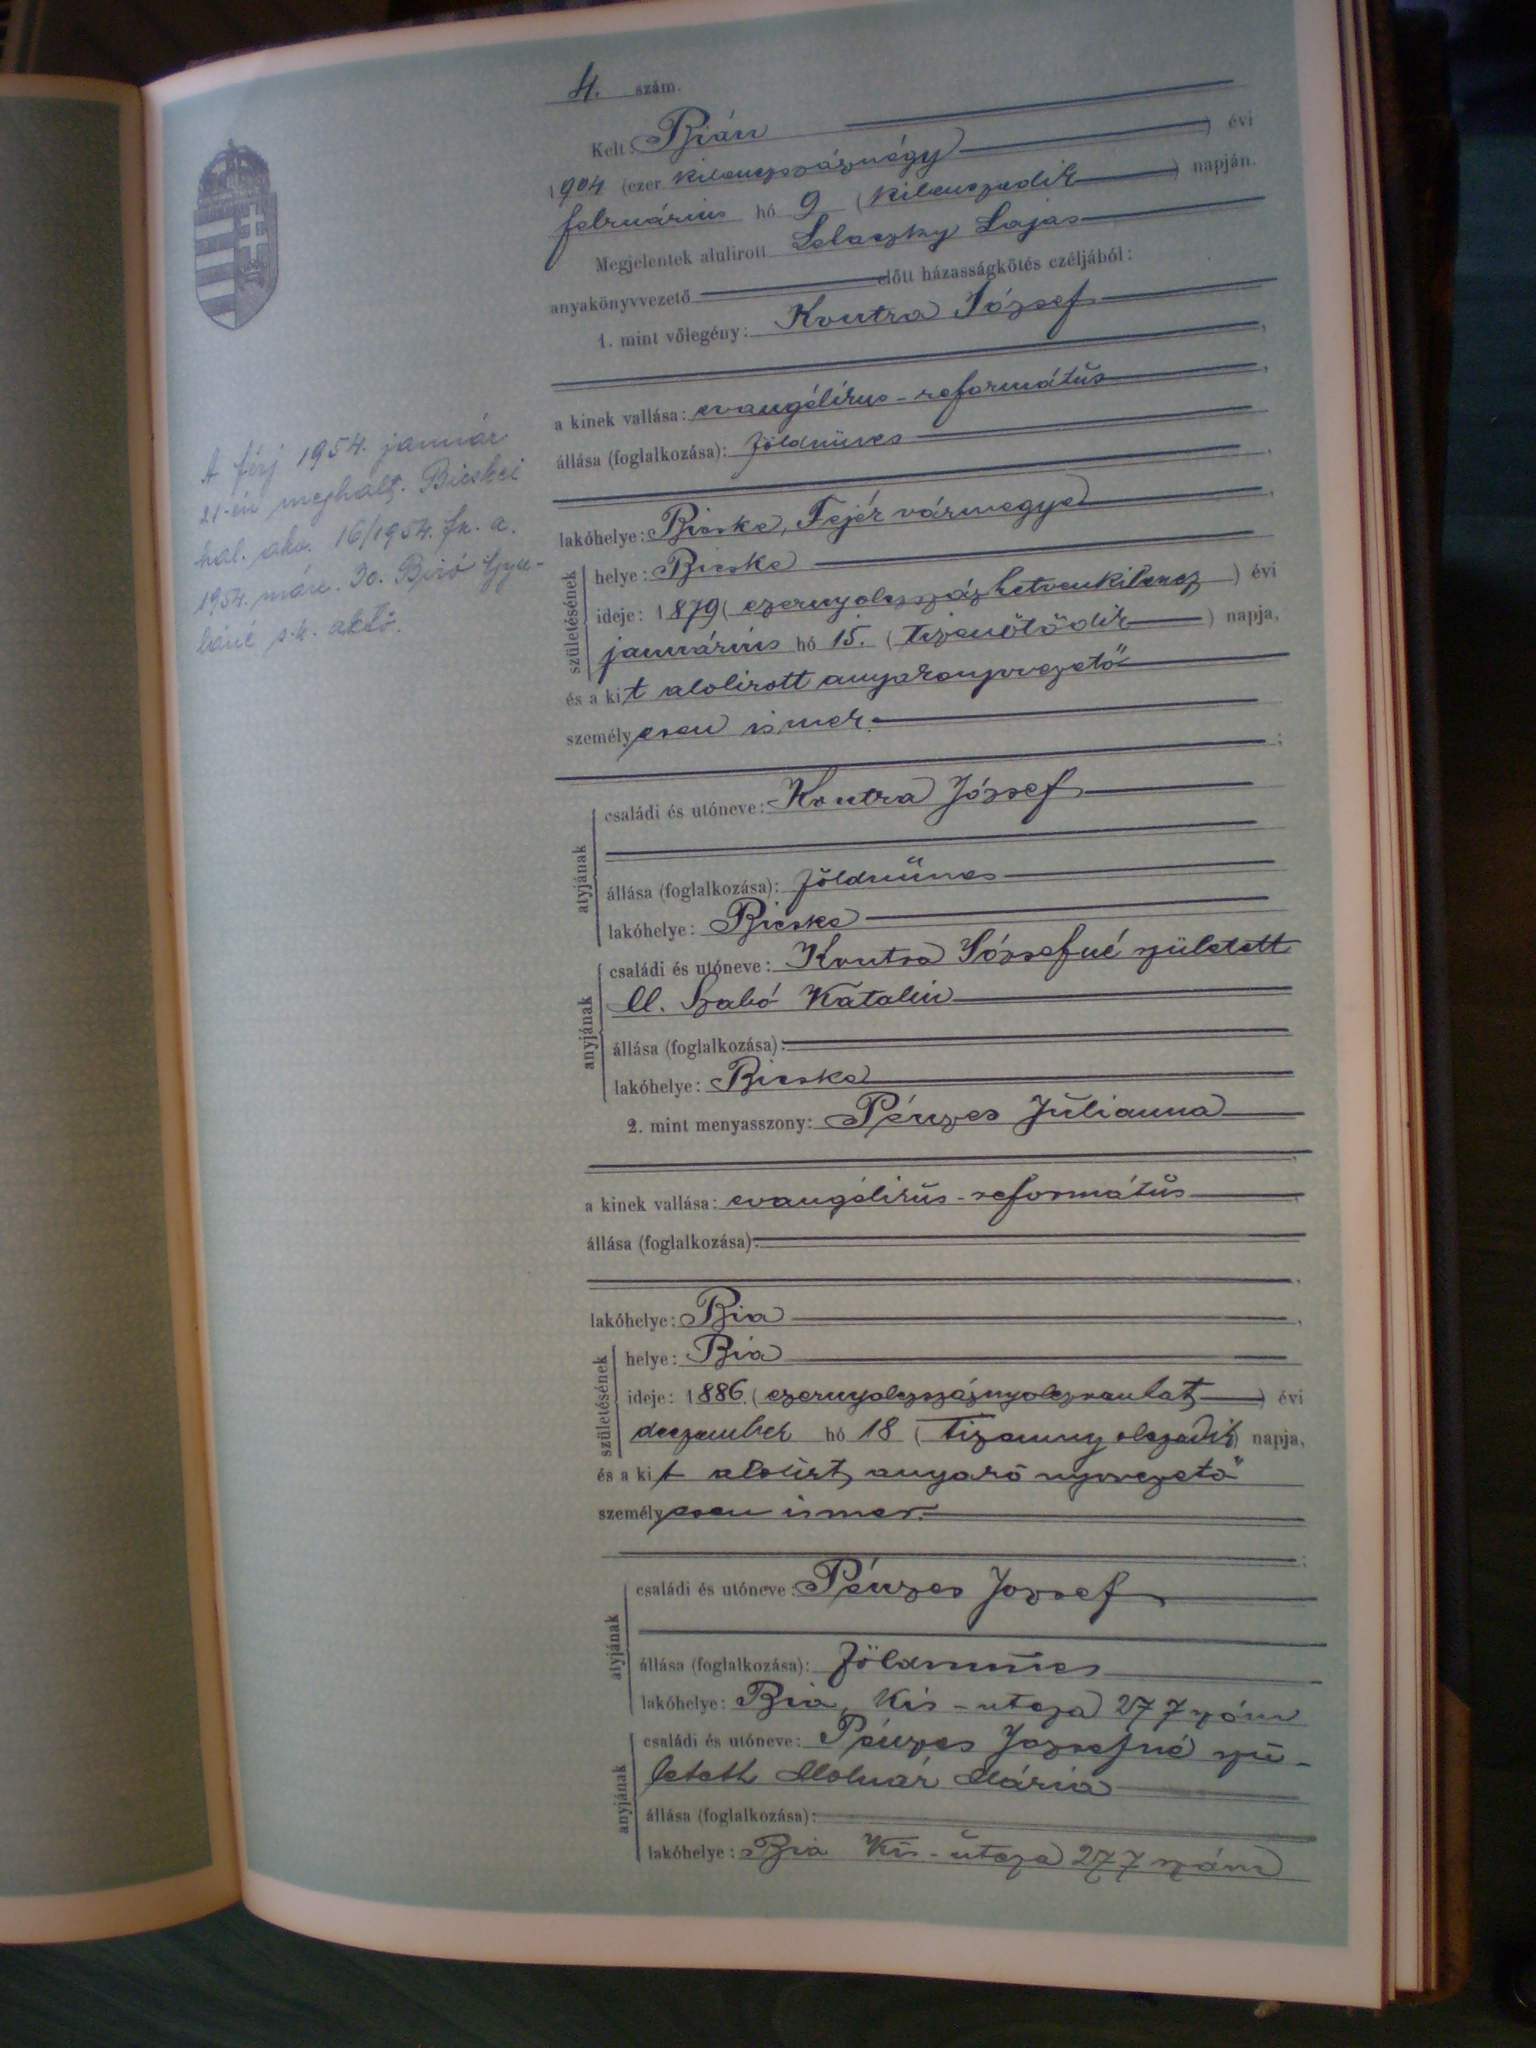 4. szám.
Kelt: Bián
1904 (ezer kilenczszáznégy) évi
februárius hó 9 (kilenczedik) napján.
Megjelentek alulirott Lajos
anyakönyvvezető előtt házasságkötés czéljából:
1. mint vőlegény: Kontra József
a kinek vallása: evangélikus-református
állása (foglalkozása): földmüves
lakóhelye: Bicske, Fejér vármegye
születésének
helye: Bicske
ideje: 1879 (ezernyolczszázhetvenkilencz) évi
januárius hó 15. (tizenötödik) napja,
és a kit alolirott anyakönyvvezető
személyesen ismer.
atyjának
családi és utóneve: Kontra József
állása (foglalkozása): földmüves
lakóhelye: Bicske
anyjának
családi és utóneve: Kontra Józsefné született
M. Szabó Katalin
állása (foglalkozása):
lakóhelye: Bicske
2. mint menyasszony: Pénzes Julianna
a kinek vallása: evangélikus-református
állása (foglalkozása):
lakóhelye: Bia
születésének
helye: Bia
ideje: 1886. (ezernyolczszáznyolczvanhat) évi
deczember hó 18 (tizennyolczadik) napja,
és a kit alolirt anyakönyvvezető
személyesen ismer.
atyjának
családi és utóneve: Pénzes Jozsef
állása (foglalkozása): földmüves
lakóhelye: Bia, Kis-utcza 277 szám
anyjának
családi és utóneve: Pénzes Jozsefné szü-
letett Molnár Mária
állása (foglalkozása):
lakóhelye: Bia Kis-utcza 277 szám
A férj 1954. január
21-én meghalt. Bicskei
hal. akv. 16/1954. fk. a.
1954. márc. 30. Biró Gyu-
láné s.k. akfő.